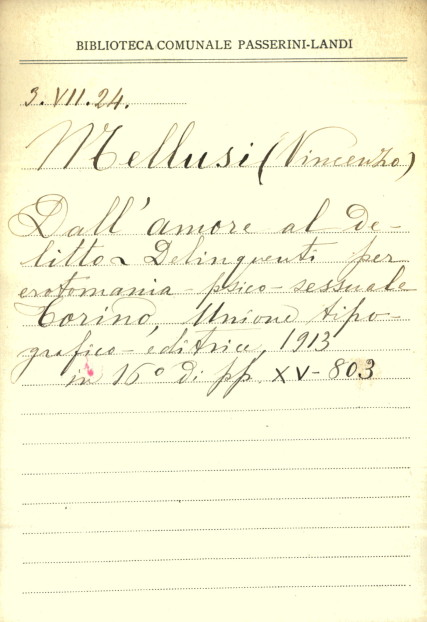 BIBLIOTECA COMUNALE PASSERINI-LANDI
3.VII.24.
Mellusi (Vincenzo)
Dall'amore al de-
litto ~ Delinquenti per
erotomania psico-sessuale
Torino, Unione tipo-
grafico-editrice, 1913
in 16° di pp. XV-803